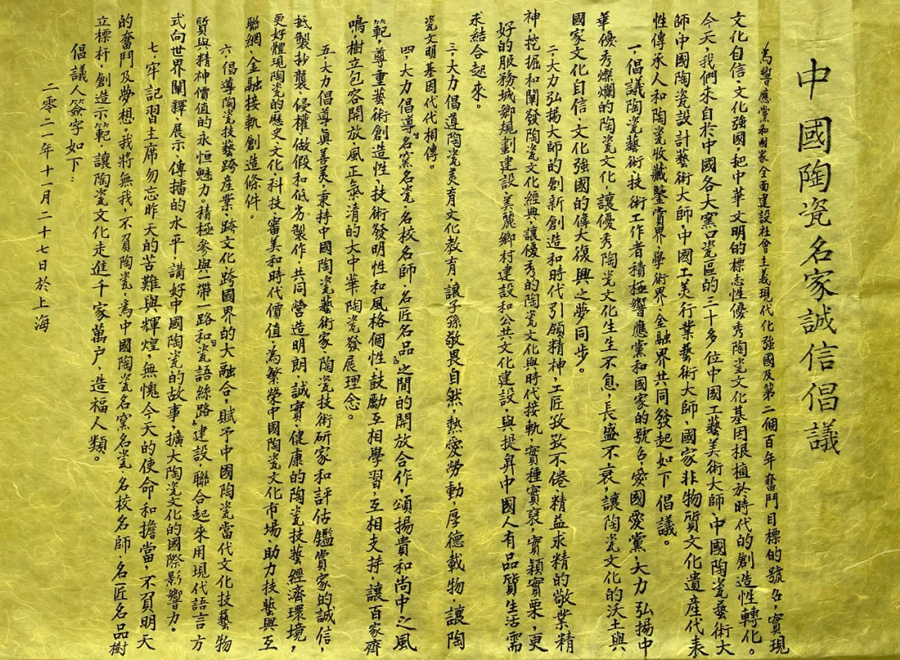 中國陶瓷名家誠信倡議
為響應黨和國家全面建設社會主義現代化強國及第二個百年奮鬥目標的號召，實現
文化自信，文化強國，把中華文明的標志性優秀陶瓷文化基因根植於時代的創造性轉化。
今天，我們來自於中國各大窯口瓷區的三十多位中國工藝美術大師，中國陶瓷藝術大
師，中國陶瓷設計藝術大師，中國工美行業藝術大師，國家非物質文化遺産代表
性傳承人和陶瓷收藏鑒賞界，學術界，金融界共同發起如下倡議。
一，倡議陶瓷藝術，技術工作者積極響應黨和國家的號召，愛國愛黨，大力弘揚中
華優秀燦爛的陶瓷文化，讓優秀陶瓷文化生生不息，長盛不衰，讓陶瓷文化的沃土與
國家文化自信，文化強國的偉大復興之夢同步。
二，大力弘揚大師的創新創造和時代引領精神，工匠孜孜不倦，精益求精的敬業精
神，挖掘和闡發陶瓷文化經典，讓優秀的陶瓷文化與時代接軌，實種實裒，實穎實栗，更
好的服務城鄉規劃建設，美麗鄉村建設和公共文化建設，與提昇中國人有品質生活需
求結合起來。
三，大力倡導陶瓷美育文化教育，讓子孫敬畏自然，熱愛勞動，厚德載物，讓陶
瓷文明基因代代相傳。
四，大力倡導"名窯名瓷，名校名師，名匠名品"之間的開放合作，頌揚貴和尚中之風
範，尊重藝術創造性，技術發明性和風格個性，鼓勵互相學習，互相支持，讓百家齊
鳴，樹立包容開放，風正氣清的大中華陶瓷發展理念。
五，大力倡導真善美，秉持中國陶瓷藝術家，陶瓷技術研家和評估鑑賞家的誠信，
抵製抄襲，侵權，做假和低劣製作，共同營造明朗，誠實，健康的陶瓷技藝經濟環境，
更好體現陶瓷的歷史，文化，科技，審美和時代價值，為繁榮中國陶瓷文化市場，助力技藝與互
聯網，金融接軌創造條件。
六，倡導陶瓷技藝跨産業，跨文化，跨國界的大融合，賦予中國陶瓷當代文化技藝物
質與精神價值的永恒魅力。積極參與一帶一路和"瓷語絲路"建設，聯合起來用現代語言方
式向世界闡釋，展示，傳播的水平，講好中國陶瓷的故事，擴大陶瓷文化的國際影響力。
七，牢記習主席勿忘昨天的苦難與輝煌，無愧今天的使命和擔當，不負明天
的奮鬥及夢想，我將無我，不負陶瓷，為中國陶瓷名窯名瓷，名校名師，名匠名品樹
立標杆，創造示範，讓陶瓷文化走進千家萬户，造福人類。
倡議人簽字如下：
二零二一年十一月二十七日於上海